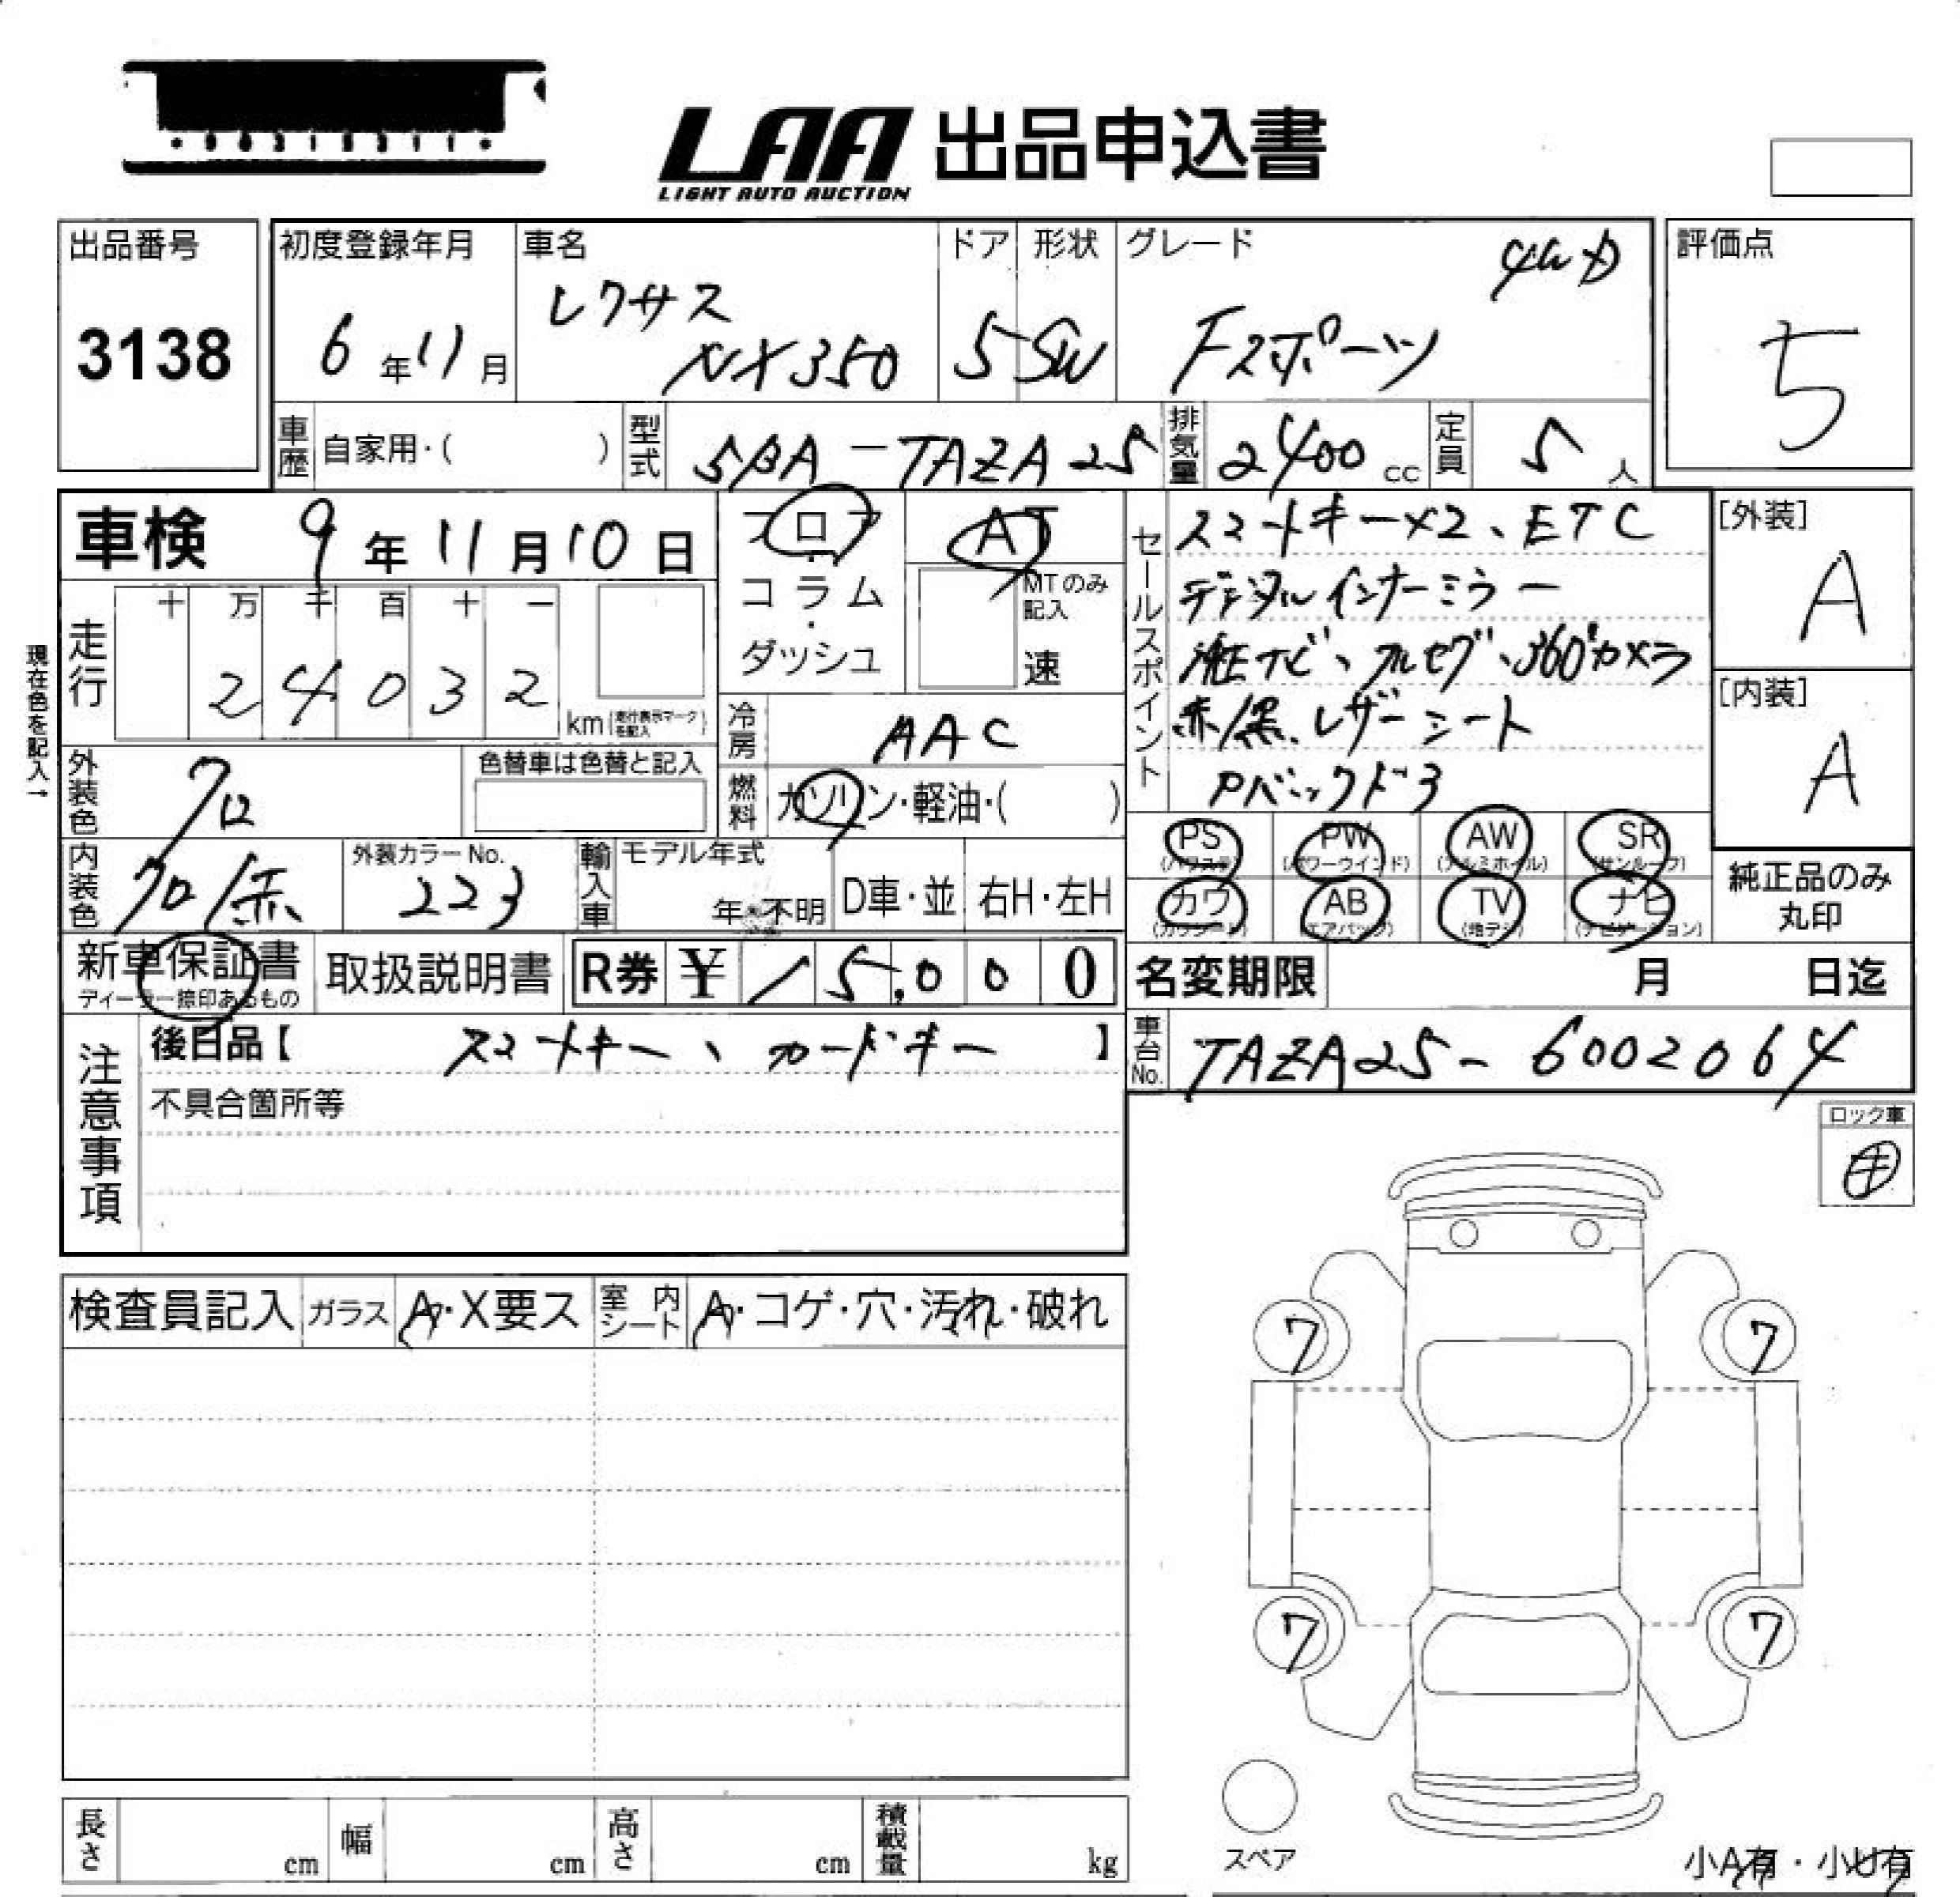 LAA 出品申込書
LIGHT AUTO AUCTION
出品番号
3138
初度登録年月
6年11月
車名
レクサス
NX350
ドア
5
形状
SW
グレード
4WD
Fスポーツ
評価点
5
車歴 自家用・( )
型式 5BA-TAZA25
排気量 2400cc
定員 5人
車検 9年11月10日
フロア・コラム・ダッシュ
AT
MTのみ記入
速
セールスポイント
スマートキー×2、ETC
デジタルインナーミラー
純正ナビ、フルセグ、360°カメラ
赤/黒、レザーシート
Pバックドア
[外装]
A
[内装]
A
現在色を記入→
走行
十 万 千 百 十 一
2 4 0 3 2 km(走行表示マークを記入)
冷房 AAC
外装色 クロ
色替車は色替と記入
燃料 ガソリン・軽油・( )
PS(パワステ) PW(パワーウインド) AW(アルミホイル) SR(サンルーフ)
カワ(カワシート) AB(エアバッグ) TV(地デジ) ナビ(ナビゲーション)
純正品のみ
丸印
内装色 クロ/赤
外装カラーNo.
223
輸入車
モデル年式
年・不明
D車・並
右H・左H
新車保証書
ディーラー捺印あるもの
取扱説明書
R券 ¥15,000
名変期限 月 日迄
注意事項
後日品【 スマートキー、カードキー 】
不具合箇所等
車台No. TAZA25-6002064
ロック車
検査員記入 ガラス A・X要ス 室内シート A・コゲ・穴・汚れ・破れ
7 7
7 7
スペア
長さ cm 幅 cm 高さ cm 積載量 kg
小A有・小U有